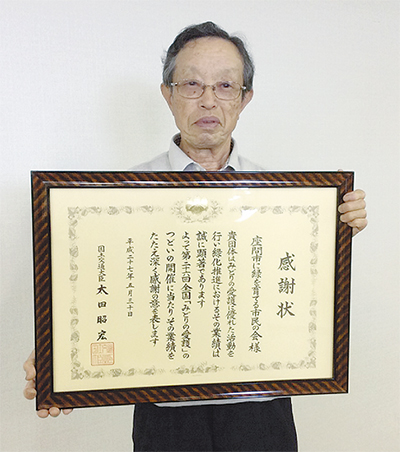 感謝状
座間市に緑を育てる市民の会様
貴団体はみどりの愛護に優れた活動を
行い緑化推進におけるその業績は
誠に顕著であります
よって第二十六回全国「みどりの愛護」の
つどいの開催に当たりその業績を
たたえ深く感謝の意を表します
平成二十七年 五月三十日
国土交通大臣 太田昭宏